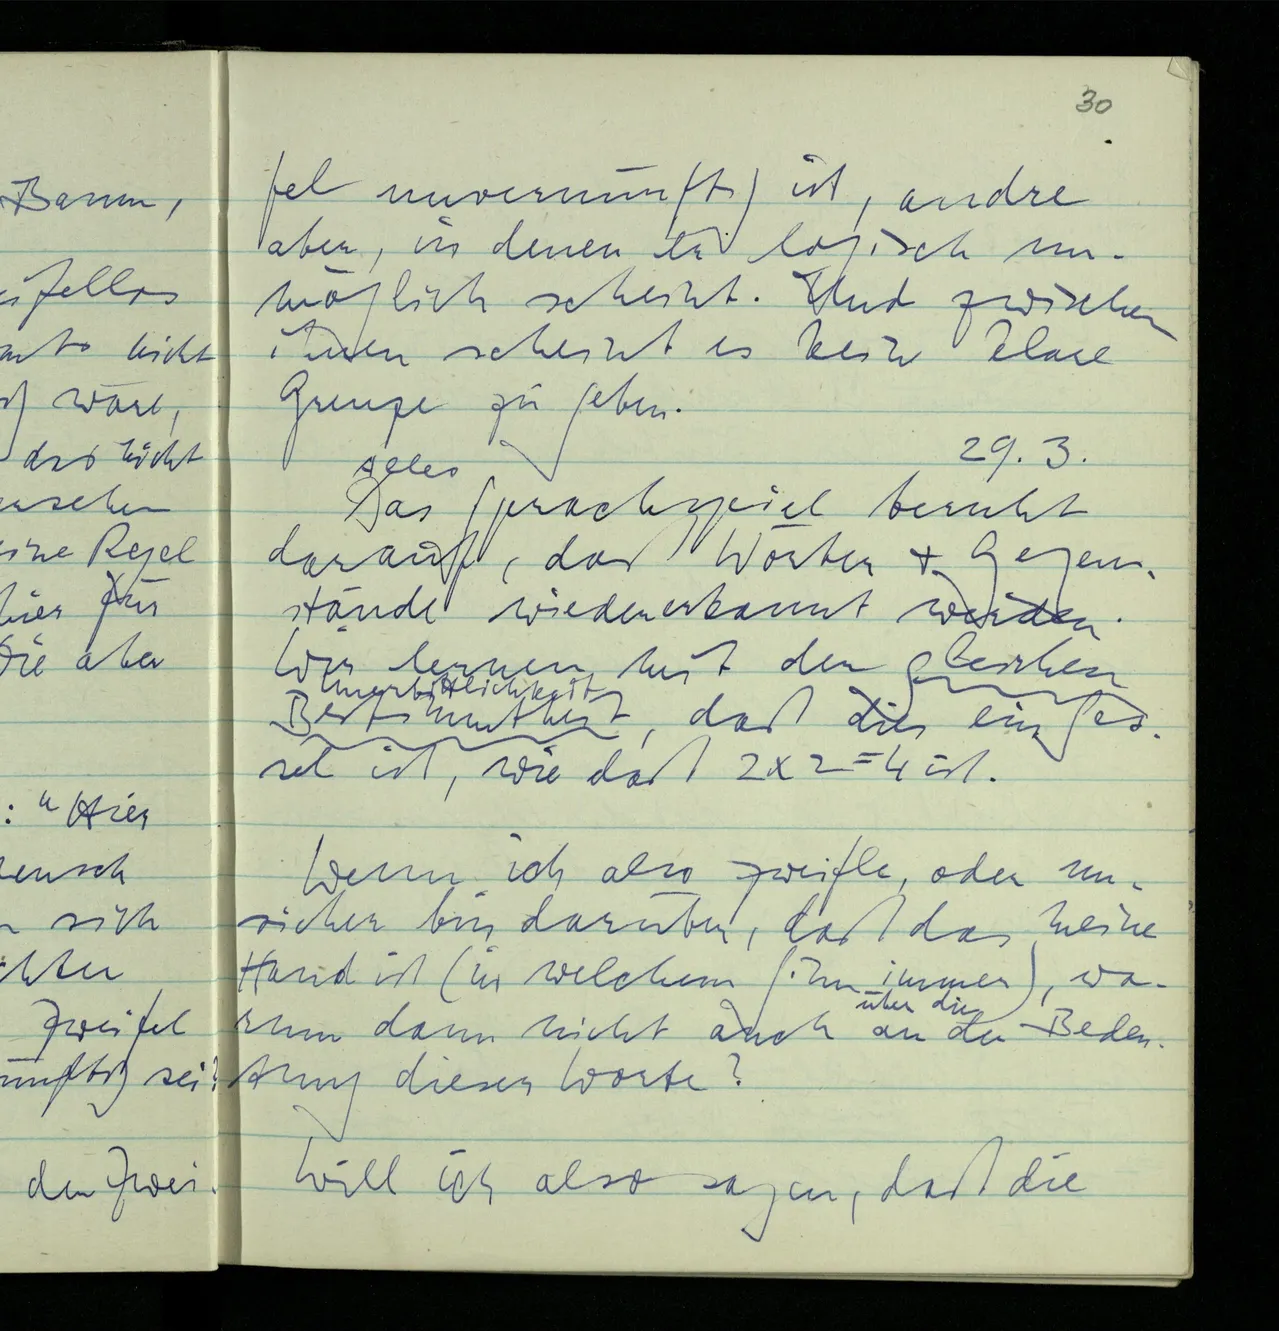 30
Baum,
eifellos
nicht
wäre,
das nicht
enschen
eine Regel
hier für
Die aber
: "Hier
ensch
sich
chter
Zweifel
ünftig sei?
den Zwei-
fel unvernünftig ist, andre
aber, in denen er logisch un-
möglich scheint. Und zwischen
ihnen scheint es keine klare
Grenze zu geben.
29. 3.
alles
Das Sprachspiel beruht
darauf, daß Wörter + Gegen-
stände wiedererkannt werden.
Wir lernen mit der gleichen
Unerbittlichkeit
Bestimmtheit, daß dies ein Ses-
sel ist, wie daß 2x2=4 ist.
Wenn ich also zweifle, oder un-
sicher bin darüber, daß das meine
Hand ist (in welchem Sinn immer), wa-
über die
rum dann nicht auch an der Bedeu-
tung dieser Worte?
Will ich also sagen, daß die